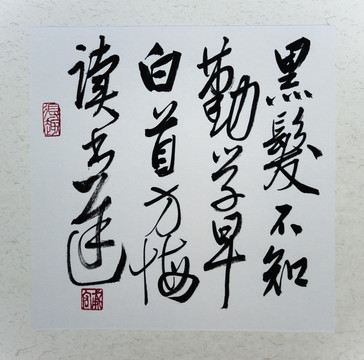 黑髮不知
勤学早
白首方悔
读书遲